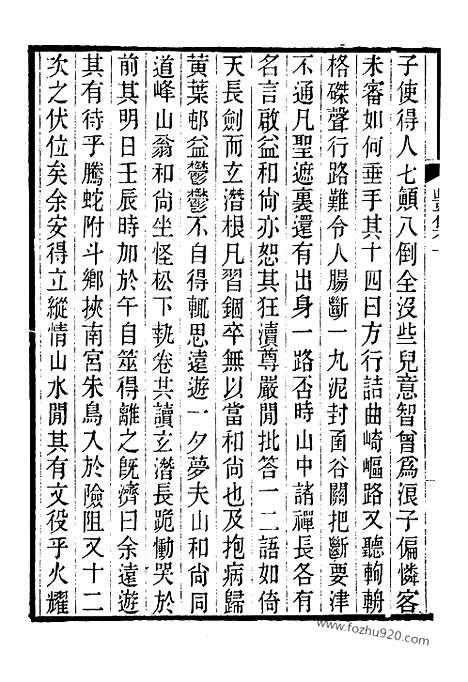 子使得人七顛八倒全沒些兒意智曾爲浪子偏憐客
未審如何垂手其十四曰方行詰曲崎嶇路又聽軥輈
格磔聲行路難令人腸斷一丸泥封函谷關把斷要津
不通凡聖遮裏還有出身一路否時山中諸禪長各有
名言啟益和尚亦恕其狂瀆尊嚴閒批答一二語如倚
天長劍而玄潛根凡習錮卒無以當和尚也及抱病歸
黃葉邨益鬱鬱不自得輒思遠遊一夕夢夫山和尚同
道峰山翁和尚坐怪松下執卷共讀玄潛長跪慟哭於
前其明日壬辰時加於午自筮得離之旣濟曰余遠遊
其有待乎騰蛇附斗鄉挾南宮朱鳥入於險阻又十二
次之伏位矣余安得立縱情山水閒其有文役乎火耀
www.fozhu920.com